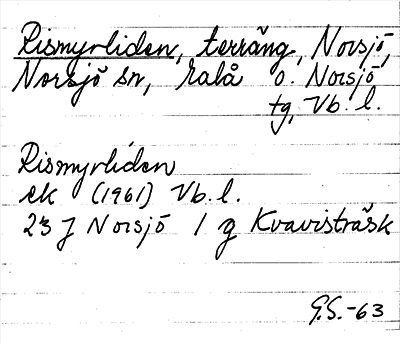 Rismyrliden, terräng, Norsjö,
Norsjö sn, Malå o. Norsjö
tg, Vb. l.
Rismyrliden
ek (1961) Vb. l.
23 J Norsjö 1 g Kvavisträsk
G.S.-63